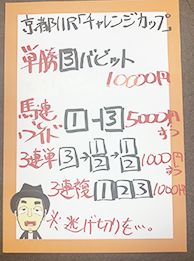 京都11R「チャレンジカップ」
単勝 3 バビット
10000円
馬連 ワイド 1-3 5000円ずつ
3連単 3→1/2→1/2 1000円ずつ
3連複 1 2 3 1000円
※逃げ切りを…。